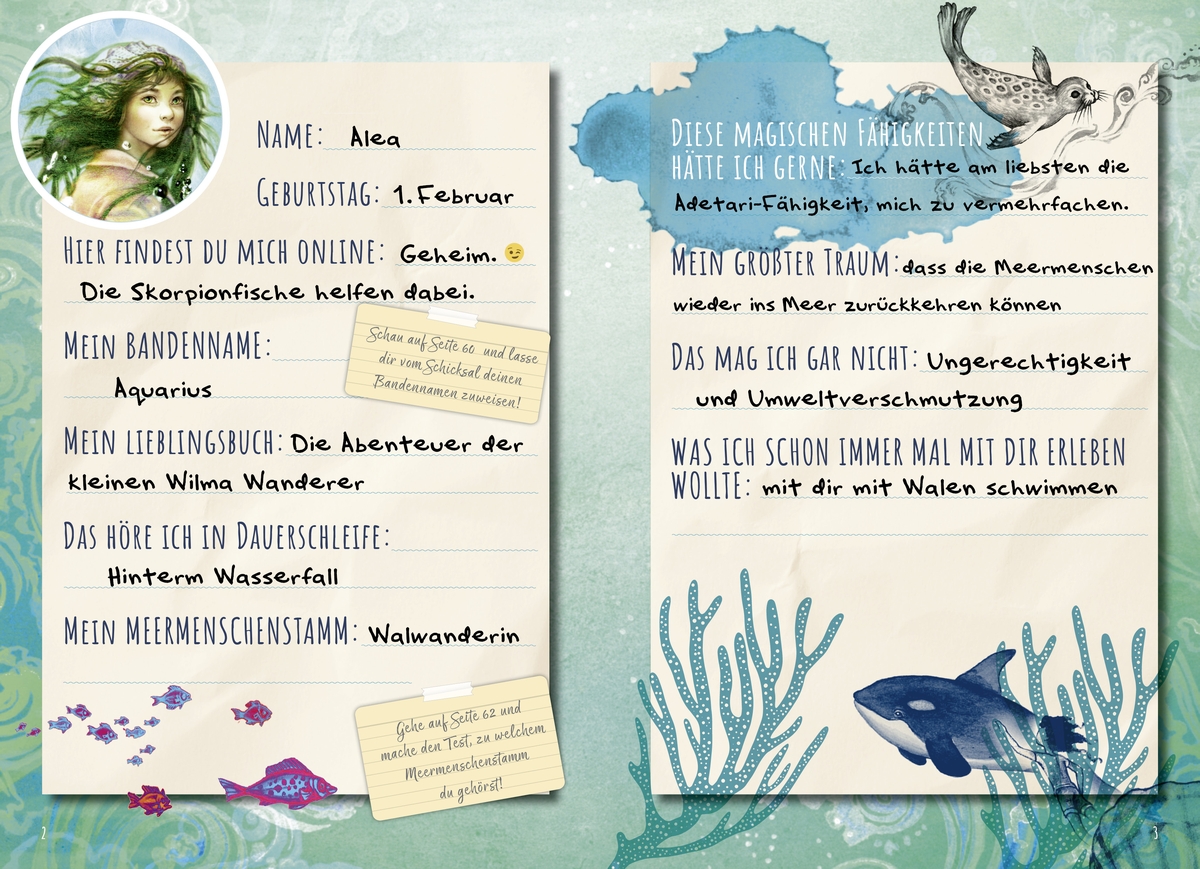 Name: Alea
Geburtstag: 1. Februar
Hier findest du mich online: Geheim. 😉
Die Skorpionfische helfen dabei.
Mein Bandenname:
Aquarius
Schau auf Seite 60 und lasse
dir vom Schicksal deinen
Bandennamen zuweisen!
Mein Lieblingsbuch: Die Abenteuer der
kleinen Wilma Wanderer
Das höre ich in Dauerschleife:
Hinterm Wasserfall
Mein Meermenschenstamm: Walwanderin
Gehe auf Seite 62 und
mache den Test, zu welchem
Meermenschenstamm
du gehörst!
2
Diese magischen Fähigkeiten
hätte ich gerne: Ich hätte am liebsten die
Adetari-Fähigkeit, mich zu vermehrfachen.
Mein größter Traum: dass die Meermenschen
wieder ins Meer zurückkehren können
Das mag ich gar nicht: Ungerechtigkeit
und Umweltverschmutzung
Was ich schon immer mal mit dir erleben
wollte: mit dir mit Walen schwimmen
3